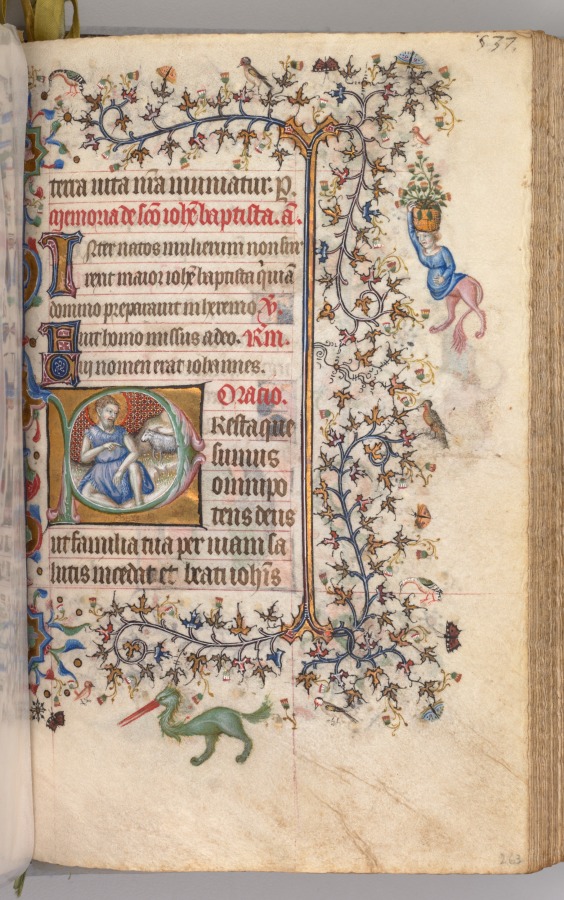 537.
terra uita nr̄a muniatur. p̄.
Memoria de sc̄o ioh̄e baptista. a̅.
Inter natos mulierum non sur
rexit maior ioh̄e baptista qui uiā
domino preparauit in heremo. V̄.
Fuit homo missus a deo. Rm̄.
Cui nomen erat iohannes.
Oracio.
PResta que
sumus
omnipo
tens deus
ut familia tua per uiam sa
lutis incedat et beati ioh̄is
263